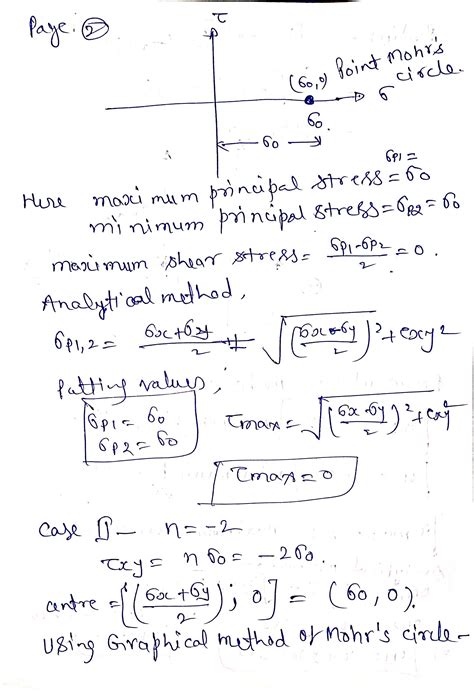 Page. ②
τ
(σ0,0) Point Mohr's circle.
σ
σ0.
σ0
Here maximum principal stress = σP1 = σ0
minimum principal stress = σP2 = σ0
maximum shear stress = (σP1-σP2)/2 = 0.
Analytical method,
σP1,2 = (σx+σy)/2 ± √(((σx-σy)/2)² + τxy²)
Putting values,
σP1 = σ0
σP2 = σ0
τmax = √(((σx-σy)/2)² + τxy²)
τmax = 0
Case II — n = -2
τxy = nσ0 = -2σ0.
centre = [((σx+σy)/2); 0] = (σ0, 0).
Using Graphical method of Mohr's circle -